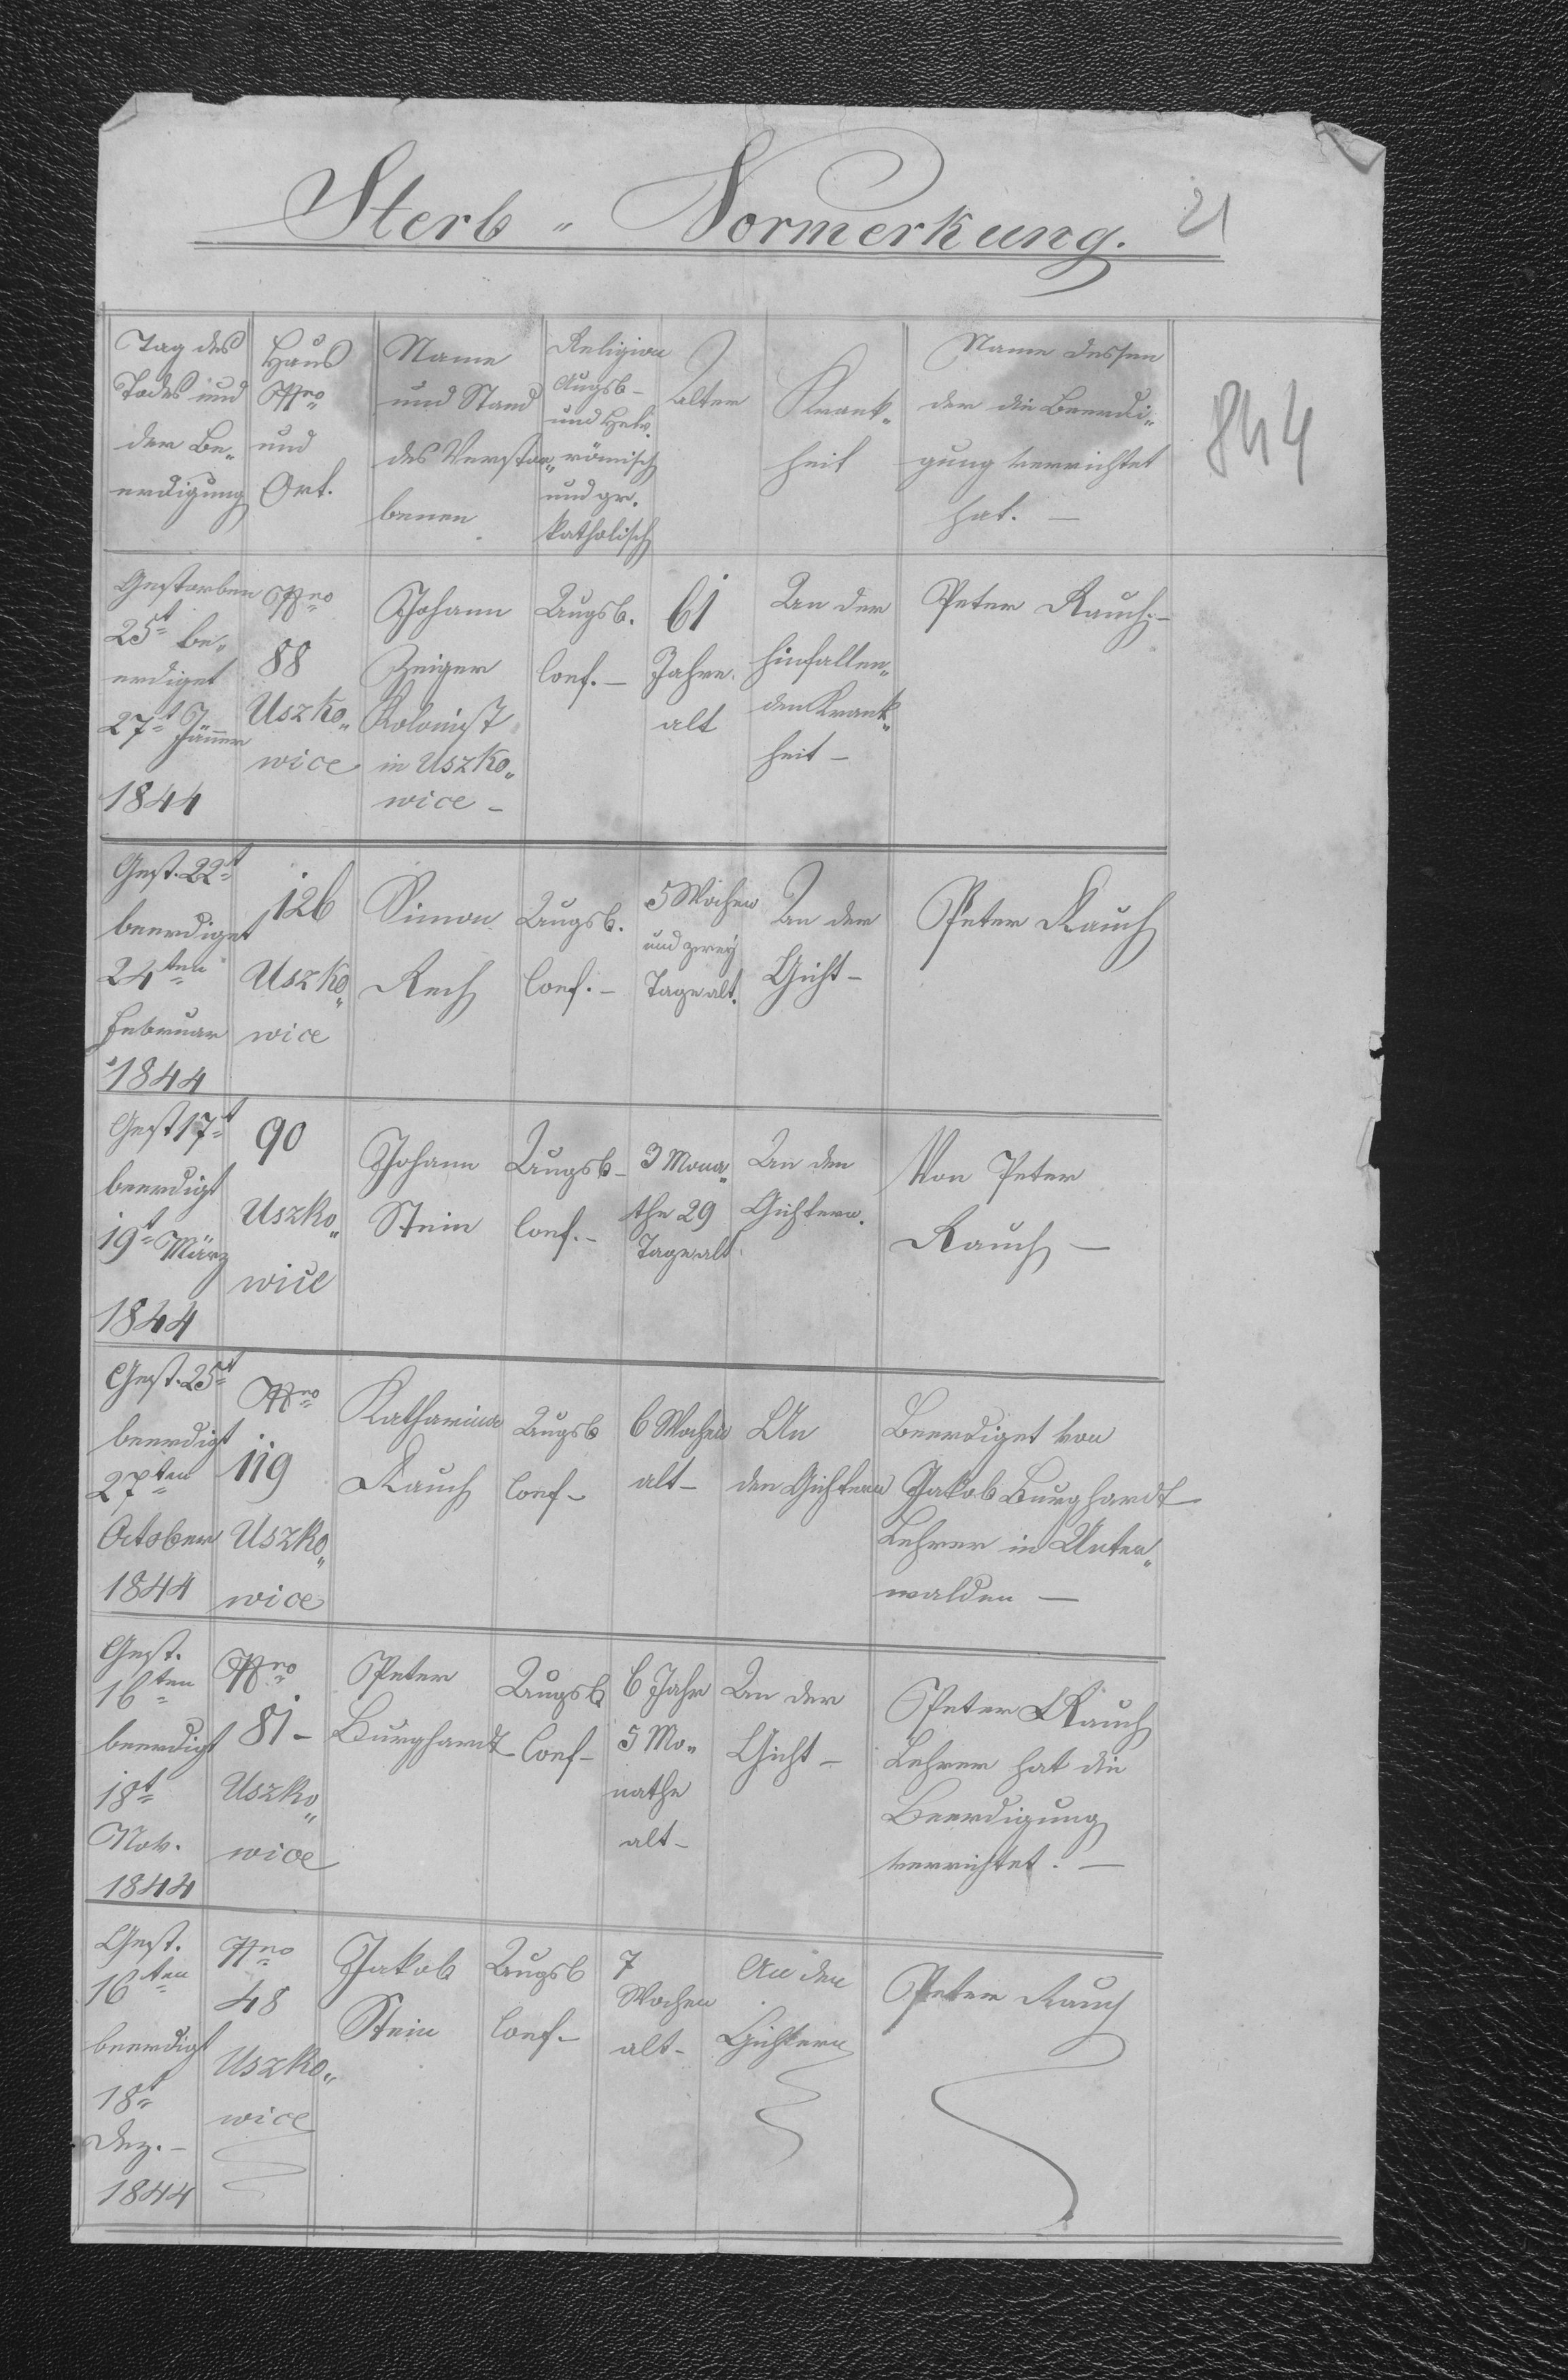 Sterb " Vormerkung.
21
Tag des
Todes und
der Be"
erdigung
Haus
Nro
und
Ort.
Name
und Stand
des Verstor"
benen
Religion
Augsb-
und Helv.
römisch
und gr.
katholisch
Alter
Krank"
heit
Name dessen
der die Beerdi"
gung verrichtet
hat. —
844
Gestorben
25t be"
erdiget
27t Jänner
1844
Nro
88
Uszko"
wice
Johann
Zeiger
Kolonist
in Uszko"
wice -
Augsb.
Conf. -
61
Jahre
alt
An der
hinfallen"
den Krank"
heit -
Peter Rauch -
Gest. 22t
beerdiget
24ten
Februar
1844
126
Uszko"
wice
Simon
Rech
Augsb.
Conf. -
5 Wochen
und zwey
Tage alt.
An der
Gicht -
Peter Rauch
Gest 17t
beerdigt
19t März
1844
90
Uszko"
wice
Johann
Stein
Augsb-
Conf. -
3 Mona"
the 29
Tage alt
An den
Gichtern.
Von Peter
Rauch -
Gest. 25t
beerdigt
27ten
October
1844
Nro
119
Uszko"
wice
Katharina
Rauch
Augsb
Conf -
6 Wochen
alt -
An
den Gichtern
Beerdiget von
Jakob Burghardt
Lehrer in Unter"
walden —
Gest.
16ten
beerdigt
18t
Nov.
1844
Nro
81 -
Uszko"
wice
Peter
Burghardt
Augsb
Conf -
6 Jahr
5 Mo"
nathe
alt -
An der
Gicht -
Peter Rauch
Lehrer hat die
Beerdigung
verrichtet. —
Gest.
16ten
beerdigt
18t
Dez. -
1844
Nro
48
Uszko"
wice
Jakob
Stein
Augsb
Conf -
7
Wochen
alt -
An den
Gichtern
Peter Rauch